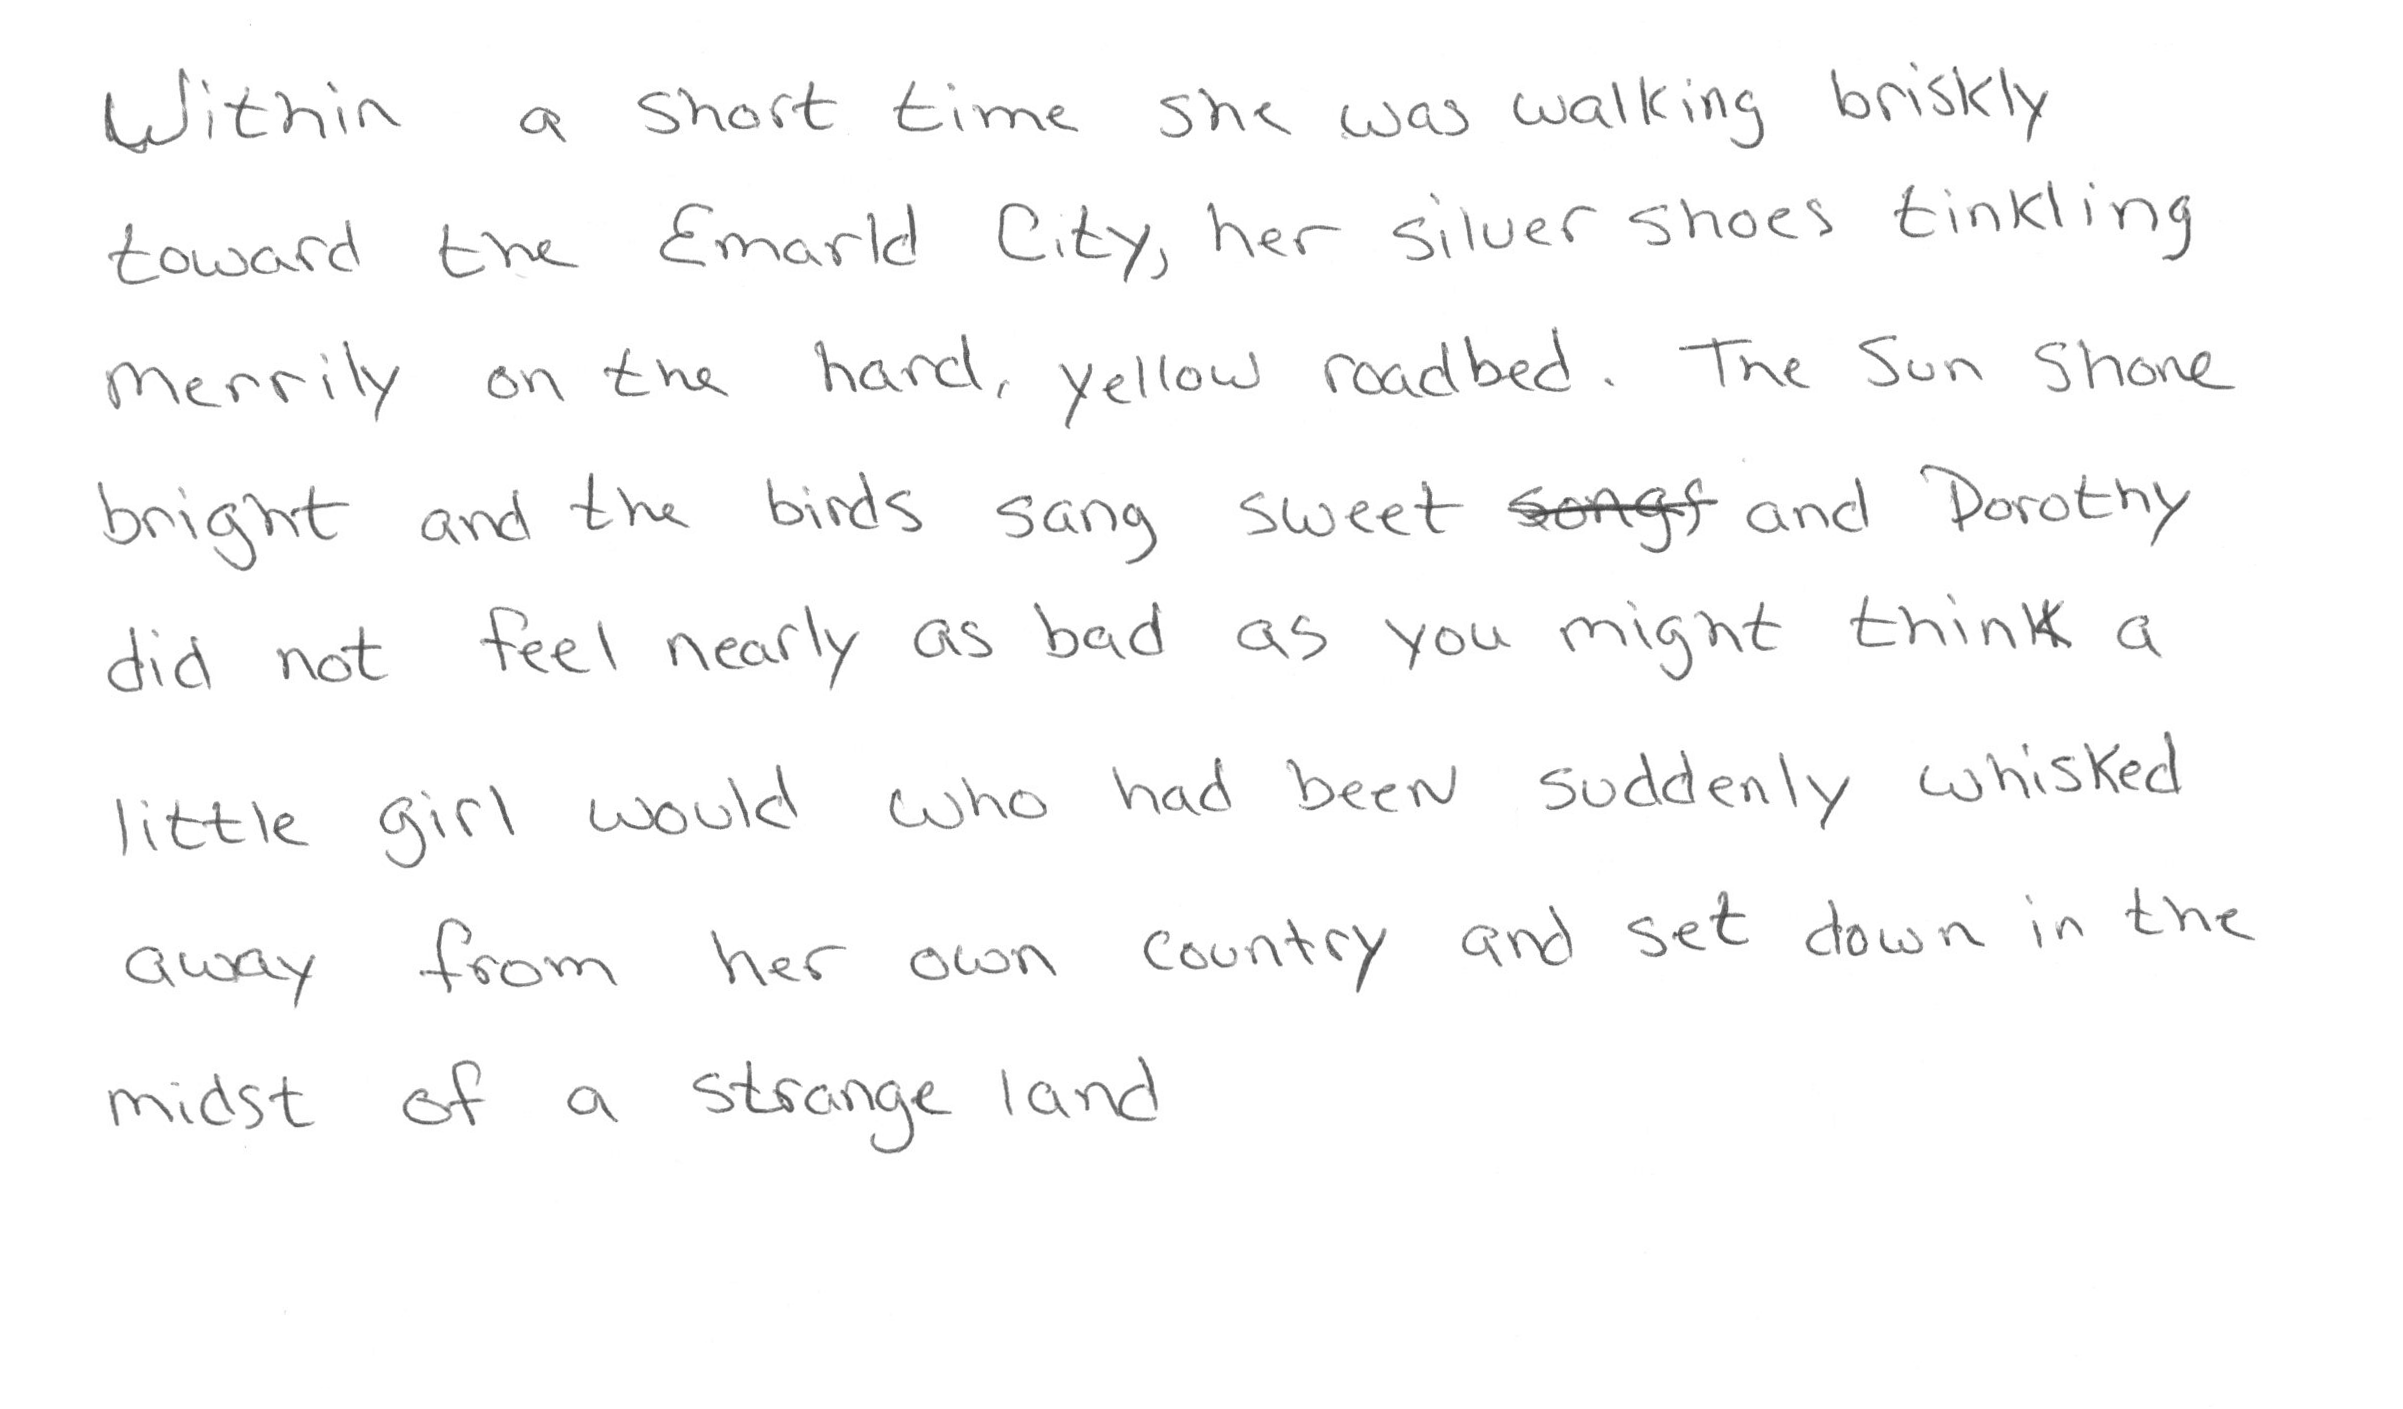 Within a short time she was walking briskly
toward the Emarld City, her silver shoes tinkling
merrily on the hard, yellow roadbed. The Sun Shone
bright and the birds sang sweet songs and Dorothy
did not feel nearly as bad as you might think a
little girl would who had been suddenly whisked
away from her own country and set down in the
midst of a strange land